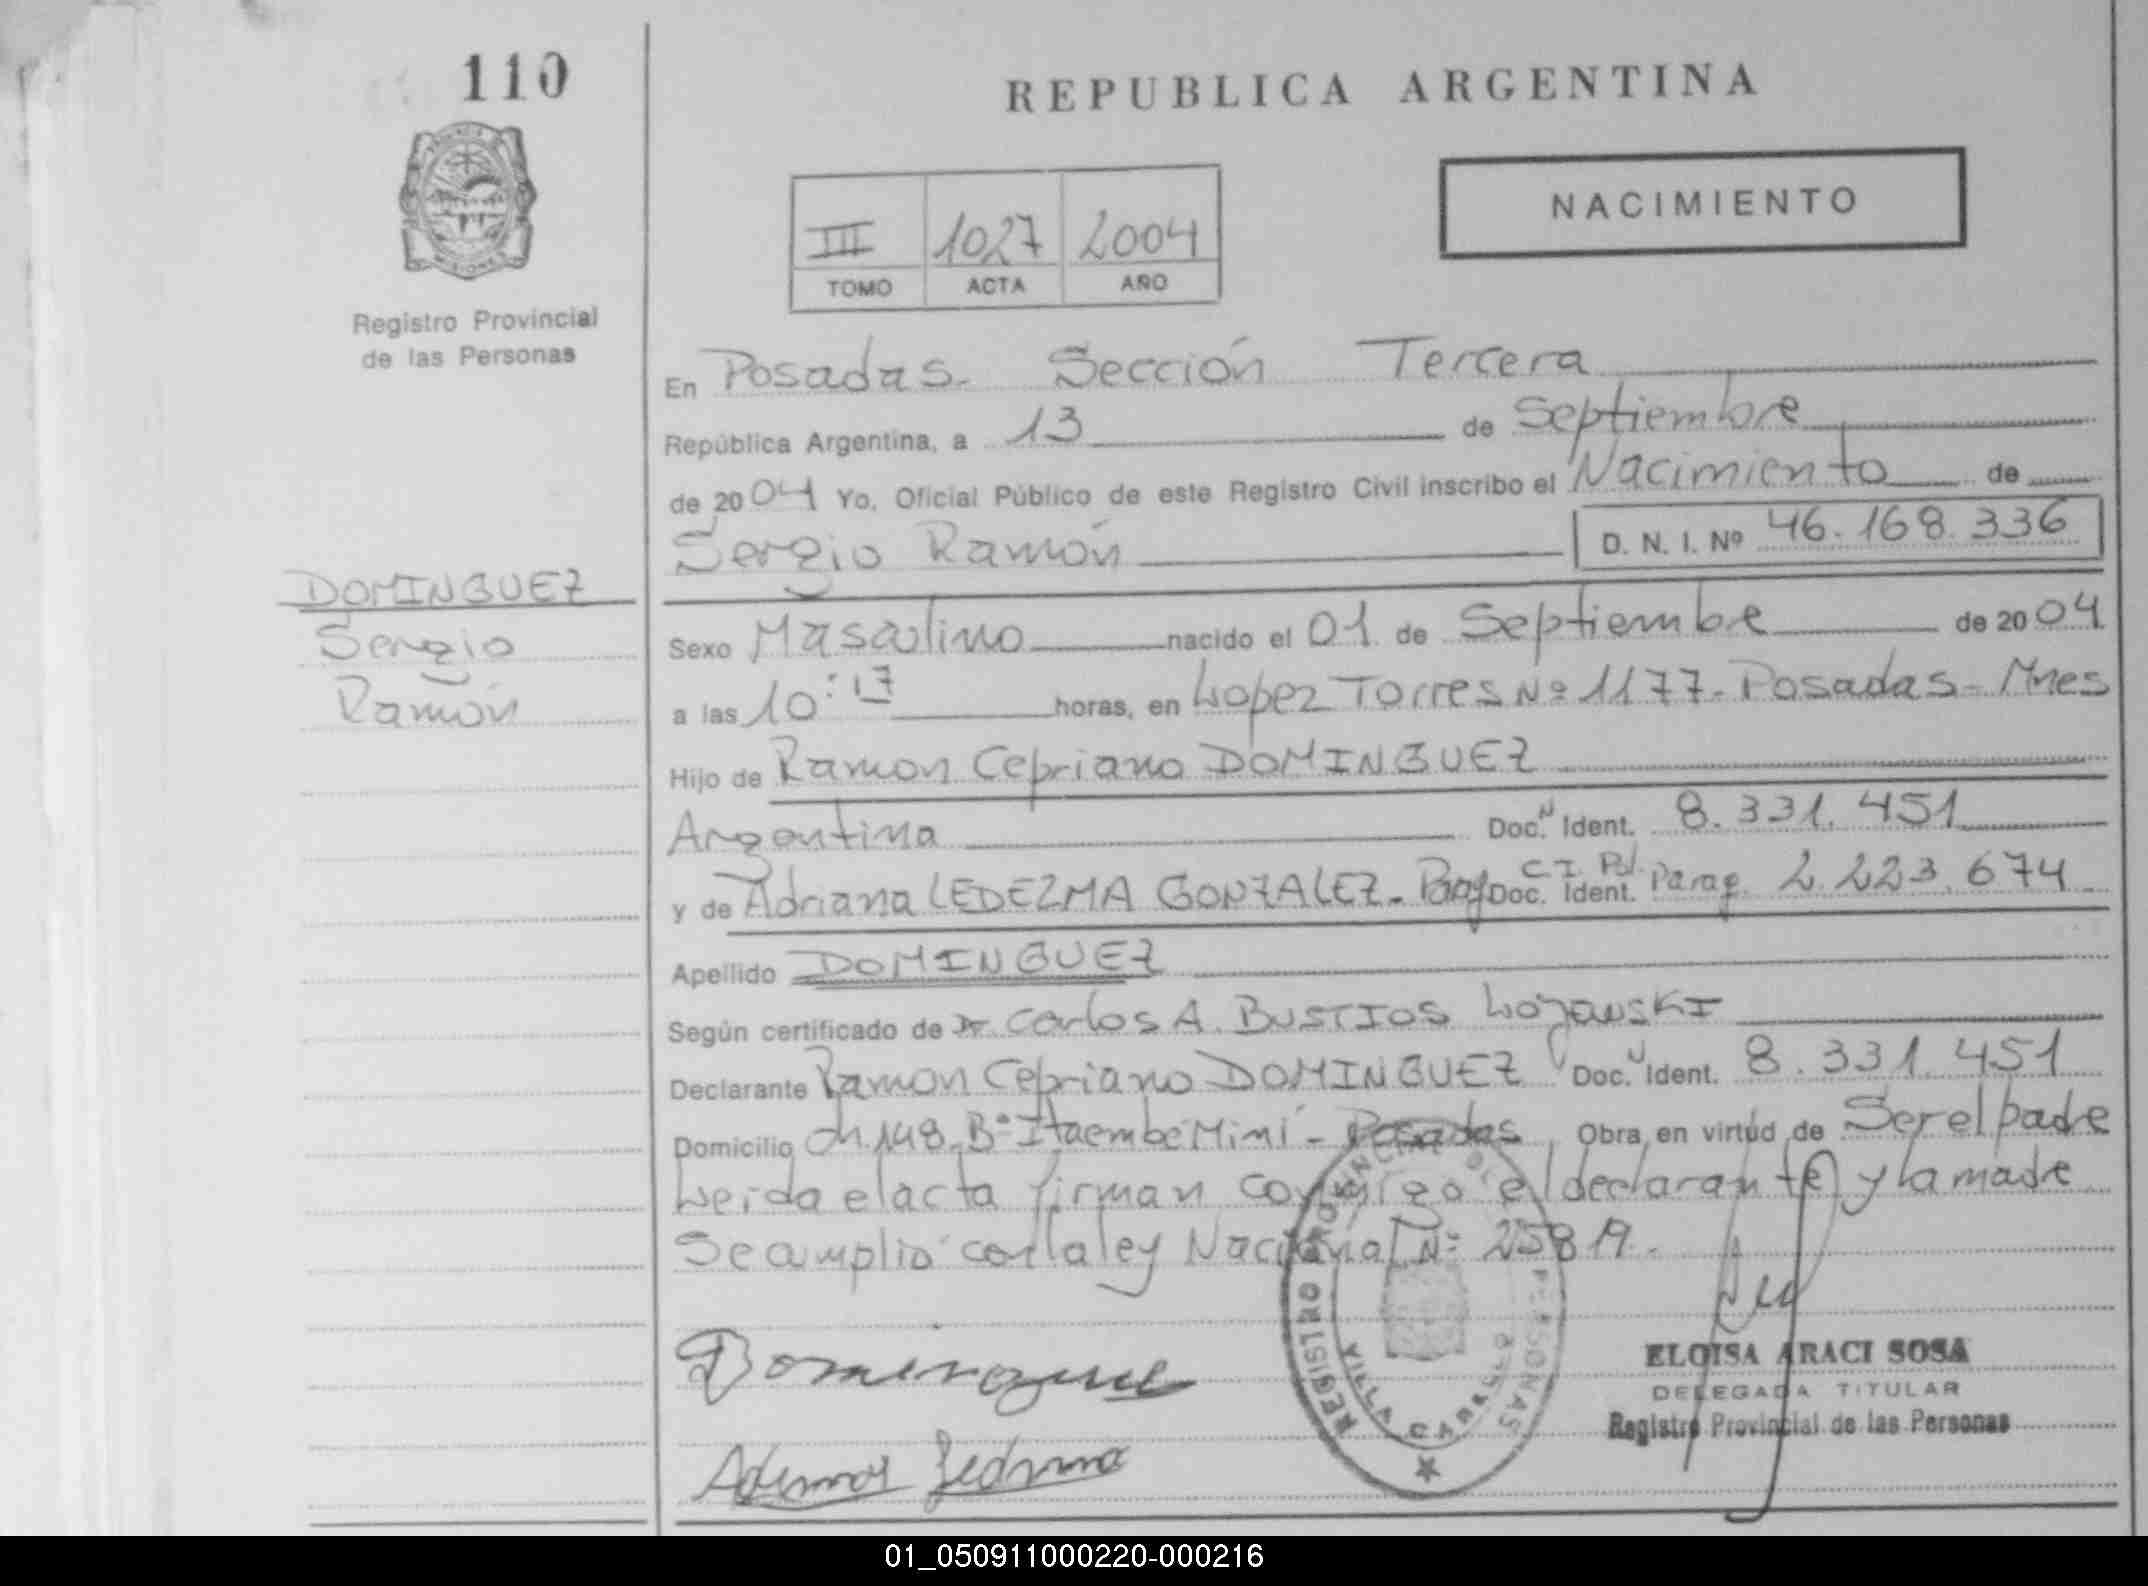 110
Registro Provincial
de las Personas
DOMINGUEZ
Sergio
Ramón
REPUBLICA ARGENTINA
III 1027 2004
TOMO ACTA AÑO
NACIMIENTO
En Posadas. Sección Tercera
República Argentina, a 13 de Septiembre
de 2004 Yo, Oficial Público de este Registro Civil inscribo el Nacimiento de
Sergio Ramón D. N. I. Nº 46.168.336
Sexo Masculino nacido el 01 de Septiembre de 2004
a las 10:17 horas, en Lopez Torres Nº 1177- Posadas - Mnes
Hijo de Ramon Cepriano DOMINGUEZ
Argentina Doc. Ident. 8.331.451
y de Adriana LEDEZMA GONZALEZ- Parag Doc. Ident. C.I. Pol. Parag. 2.223.674
Apellido DOMINGUEZ
Según certificado de Dr. Carlos A. BUSTIOS
Declarante Ramon Cepriano DOMINGUEZ Doc. Ident. 8.331.451
Domicilio Ch. 148. Bº Itaembé Miní - Posadas Obra en virtud de Ser el padre
Leida el acta firman conmigo el declarante y la madre
Se cumplió con la ley Nacional Nº 25819.
REGISTRO PROVINCIAL DE LAS PERSONAS
VILLA CABELLO
ELOISA ARACI SOSA
DELEGADA TITULAR
Registro Provincial de las Personas
01_050911000220-000216